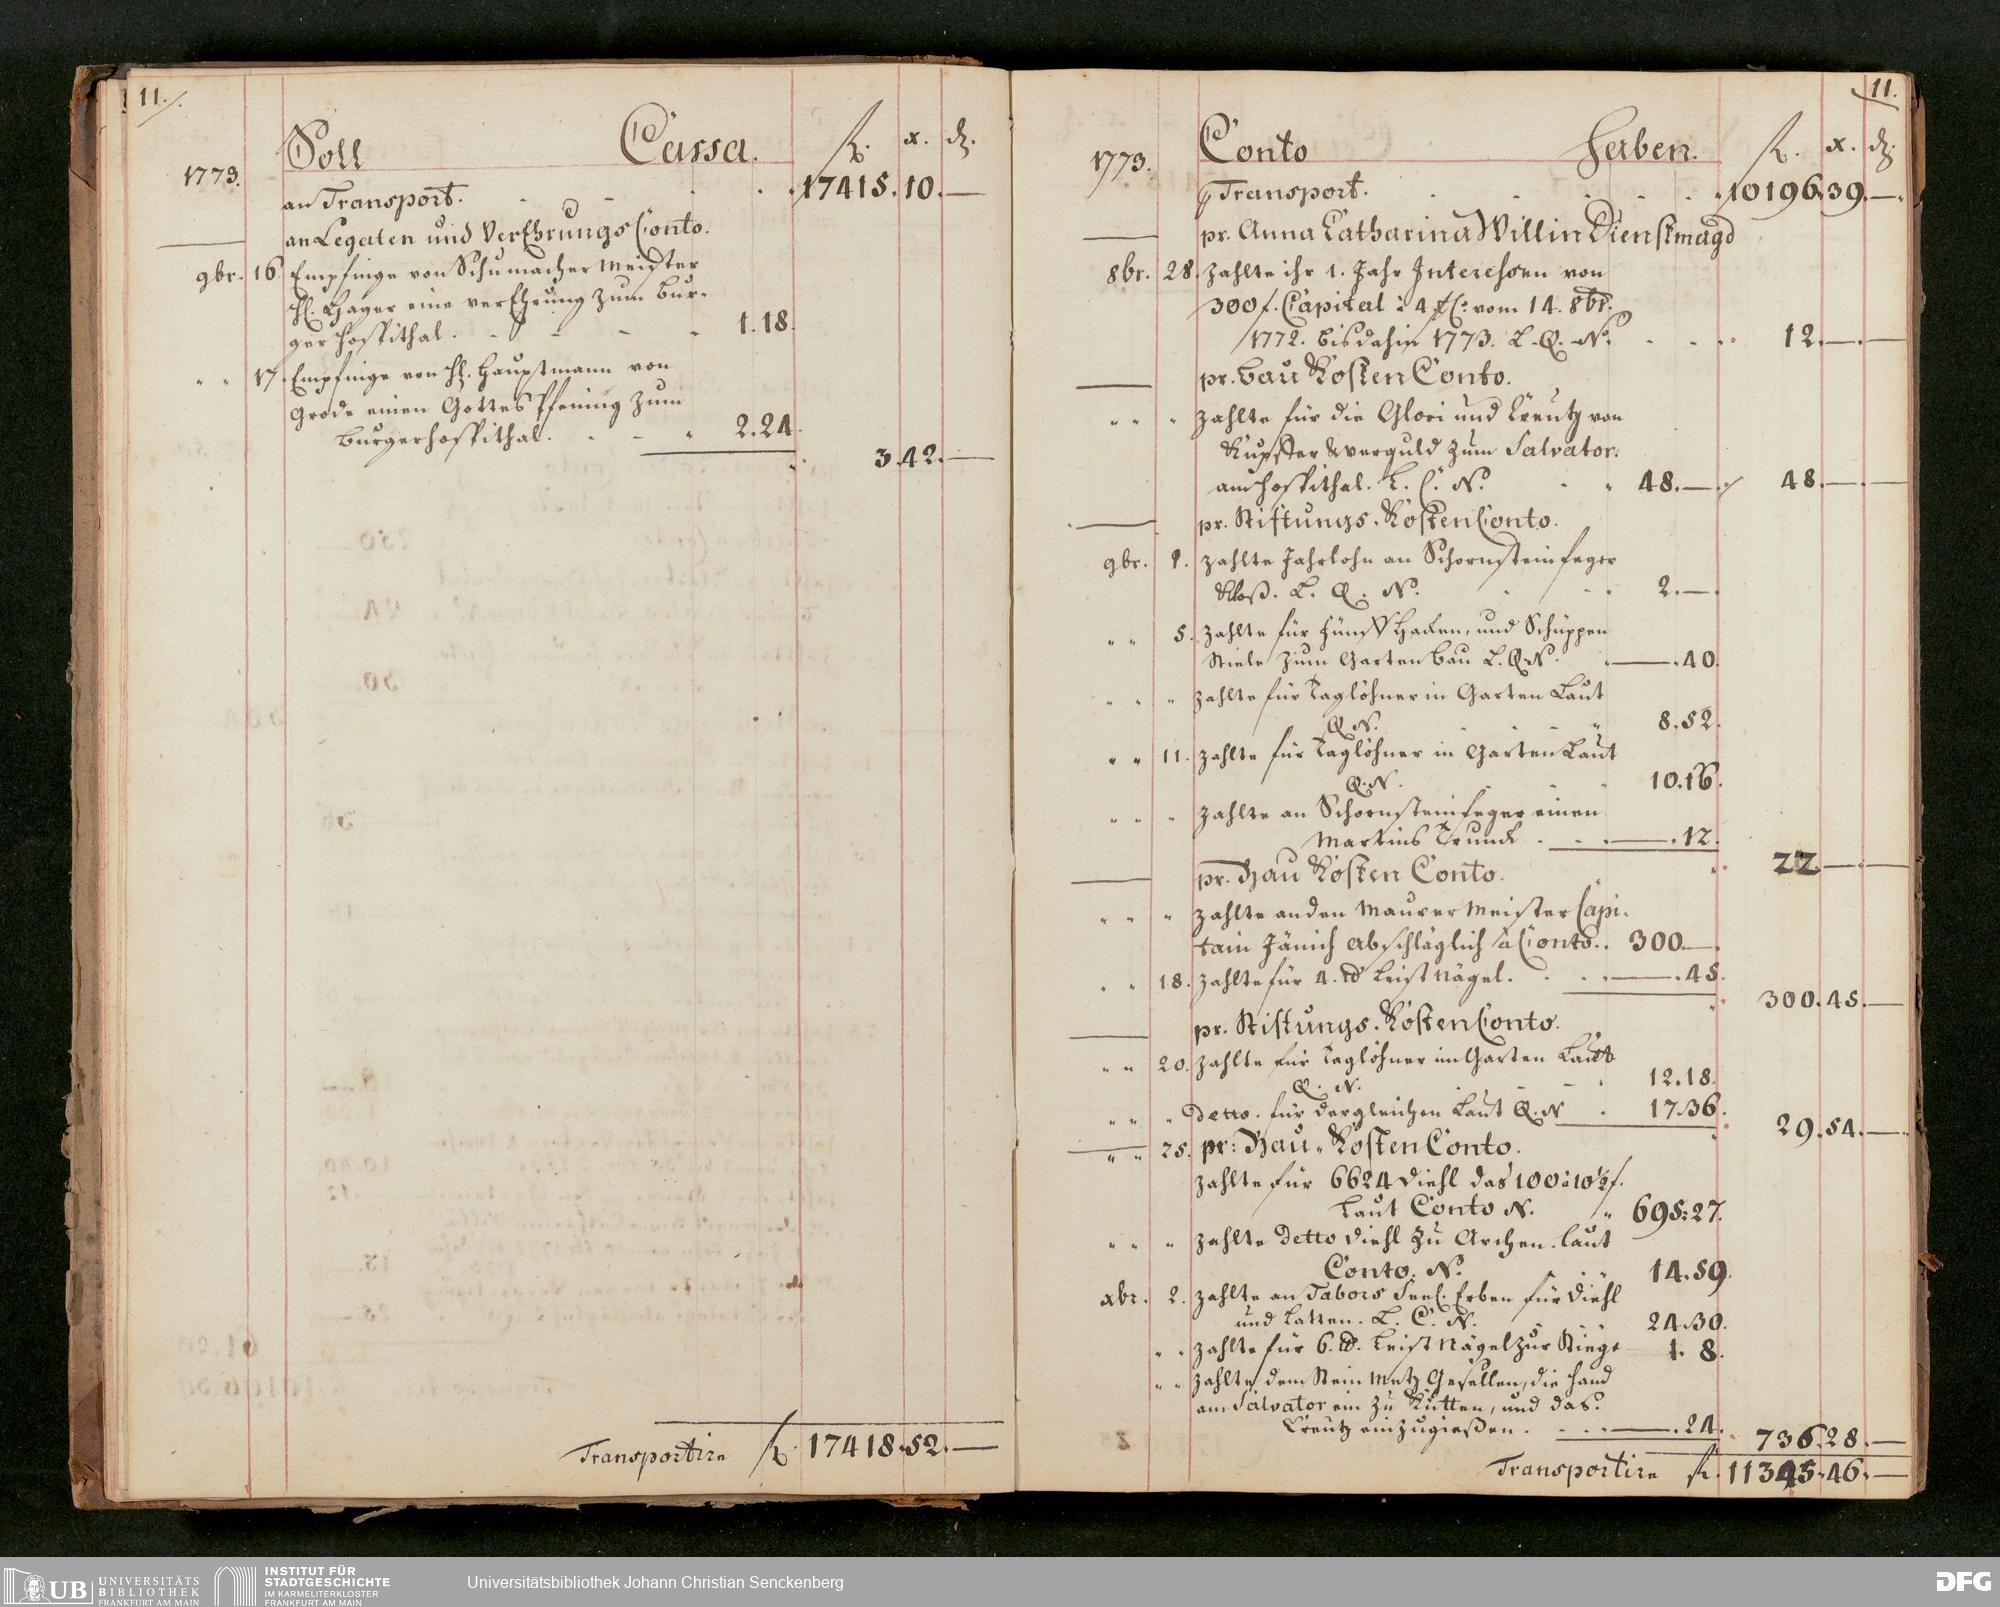 11.
Soll Cassa. fl. x. ₰.
1773.
an Transport. 17415. 10. —
an Legaten und VerEhrungs Conto.
9br. 16 Empfinge von Schumacher Meister
H. Hager eine verEhrung zum bur-
ger hospithal. 1.18.
" " 17. Empfinge von H. Hauptmann von
Grode einen Gottes Pfening zum
burgerhospithal. 2.24.
3.42. —
Transportire fl. 17418.52. —
11.
Conto Haben. fl. x. ₰.
1773.
Transport. 10196.39. —
pr. Anna Catharina Willin Dienstmagd
8br. 28. zahlte ihr 1. Jahr Interessen von
300 f. Capital à 4 pC: vom 14. 8br.
1772. bis dahin 1773. L. Q. No. 12. — —
pr. bau Kosten Conto.
" " " zahlte für die Glori und Creutz von
Kupffer & verguld zum Salvator.
am hospithal. L. C. No. 48. — 48. — —
pr. Stiftungs. Kosten Conto.
9br. 1. zahlte Jahrlohn an Schornsteinfeger
Kloß. L. Q. No. 2. —
" " 5. zahlte für fünff Hacken, und Schüppen
Stiele zum Garten bau L. Q. No. — .40.
" " " zahlte für Taglöhner in Garten Laut
Q. N. 8.52.
" " 11. zahlte für Taglöhner in Garten Laut
Q. N. 10.16.
" " " zahlte an Schornsteinfeger einen
Martins Trunck — .12.
22 — —
pr. Bau Kosten Conto.
" " " zahlte an den Maurer Meister Capi-
tain Jänich abschläglich à Conto. 300. —
" " 18. zahlte für 4. lb Leist Nägel. — .45.
300.45. —
pr. Stiftungs. Kosten Conto.
" " 20. zahlte für Taglöhner im Garten Laut
Q. N. 12.18.
" " " detto. für dergleichen Laut Q. N 17.36.
29.54. —
" " 25. pr: Bau- Kosten Conto.
zahlte für 6624 Diehl das 100 à 10½ f.
Laut Conto N. 695:27.
" " " zahlte detto Diehl zu Archen. laut
Conto. N. 14.59.
xbr. 2. zahlte an Tabors Seel. Erben für Diehl
und Latten. L. C. N. 24.30.
" " zahlte für 6. lb. Leist Nägel zur Stiege 1. 8.
" " zahlte dem Stein Metz Gesellen, die hand
am Salvator ein zu Kütten, und das
Creutz einzugießen. — .24.
736.28. —
Transportire fl. 11345.46. —
UB UNIVERSITÄTS
BIBLIOTHEK
FRANKFURT AM MAIN
INSTITUT FÜR
STADTGESCHICHTE
IM KARMELITERKLOSTER
FRANKFURT AM MAIN
Universitätsbibliothek Johann Christian Senckenberg
DFG